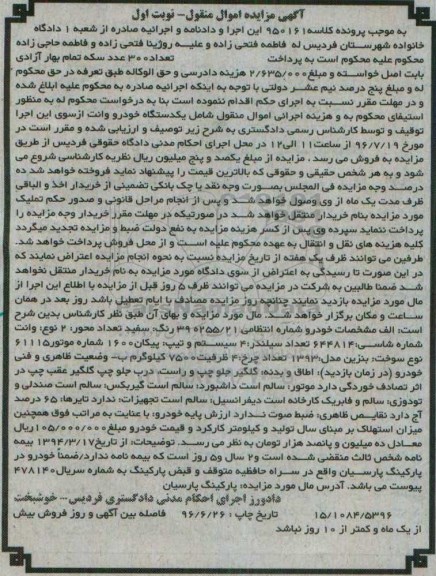 آگهی مزایده اموال منقول- نوبت اول
به موجب پرونده کلاسه ۹۵۰۱۶۱ این اجرا و دادنامه و اجرائیه صادره از شعبه ۱ دادگاه
خانواده شهرستان فردیس له فاطمه فتحی زاده و علیه روزیتا فتحی زاده و فاطمه حاجی زاده
محکوم علیه محکوم است به پرداخت تعداد ۳۰۰ عدد سکه تمام بهار آزادی
بابت اصل خواسته و مبلغ ۲/۶۳۵/۰۰۰ هزینه دادرسی و حق الوکاله طبق تعرفه در حق محکوم
له و مبلغ پنج درصد نیم عشر دولتی با توجه به اینکه اجرائیه صادره به محکوم علیه ابلاغ شده
و در مهلت مقرر نسبت به اجرای حکم اقدام ننموده است بنا به درخواست محکوم له به منظور
استیفای محکوم به و هزینه اجرائی اموال منقول شامل یکدستگاه خودرو وانت ازسوی این اجرا
توقیف و توسط کارشناس رسمی دادگستری به شرح زیر توصیف و ارزیابی شده و مقرر است در
مورخ ۹۶/۷/۱۹ از ساعت ۱۱ الی ۱۲ در محل اجرای احکام مدنی دادگاه حقوقی فردیس از طریق
مزایده به فروش می رسد . مزایده از مبلغ یکصد و پنج میلیون ریال نظریه کارشناسی شروع می
شود و به هر شخص حقیقی و حقوقی که بالاترین قیمت را پیشنهاد نماید فروخته خواهد شد ده
درصد وجه مزایده فی المجلس بصورت وجه نقد یا چک بانکی تضمینی از خریدار اخذ و الباقی
ظرف مدت یک ماه از وی وصول خواهد شد و پس از انجام مراحل قانونی و صدور حکم تملیک
مورد مزایده بنام خریدار منتقل خواهد شد در صورتیکه در مهلت مقرر خریدار وجه مزایده را
پرداخت ننماید سپرده وی پس از کسر هزینه مزایده به نفع دولت ضبط و مزایده تجدید میگردد
کلیه هزینه های نقل و انتقال به عهده محکوم علیه است و از محل فروش پرداخت خواهد شد.
طرفین می توانند ظرف یک هفته از تاریخ مزایده نسبت به نحوه انجام مزایده اعتراض نمایند که
در این صورت تا رسیدگی به اعتراض از سوی دادگاه مورد مزایده به نام خریدار منتقل نخواهد
شد ضمنا طالبین به شرکت در مزایده می توانند ظرف ۵ روز قبل از مزایده با اطلاع این اجرا از
مال مورد مزایده بازدید نمایند چنانچه روز مزایده مصادف با ایام تعطیل باشد روز بعد در همان
ساعت و مکان برگزار خواهد شد. مال مورد مزایده و بهای آن طبق نظر کارشناس بدین شرح
است: الف مشخصات خودرو شماره انتظامی ۲۱-۳۹۰۲۵۵ رنگ: سفید تعداد محور: ۲ نوع: وانت
شماره شاسی: ۶۴۴۸۱۴ تعداد سیلندر: ۴ سیستم و تیپ: پیکان ۱۶۰۰ شماره موتور ۶۱۱۱۵
نوع سوخت: بنزین مدل: ۱۳۹۳ تعداد چرخ: ۴ ظرفیت ۷۵۰۰ کیلوگرم ب- وضعیت ظاهری و فنی
خودرو (در زمان بازدید): اطاق و بدنه: گلگیر جلو چپ و راست، درب جلو چپ گلگیر عقب چپ در
اثر تصادف خوردگی دارد موتور: سالم است داشبورد: سالم است گیربکس: سالم است صندلی و
تودوزی: سالم و فابریک کارخانه است دیفرانسیل: سالم است تجهیزات: ندارد تایرها: ۶۵ درصد
آج دارد نقایص ظاهری: ضبط صوت ندارد ارزش پایه خودرو: با عنایت به مراتب فوق همچنین
میزان استهلاک بر مبنای سال تولید و کیلومتر کارکرد و قیمت خودرو مبلغ ۱۰۵/۰۰۰/۰۰۰ ریال
معادل ده میلیون و پانصد هزار تومان به نظر می رسد. توضیحات: از تاریخ ۱۳۹۴/۳/۱۷ بیمه
نامه شخص ثالث منقضی شده است و ۲ سال و ۵ روز است که بیمه نامه ندارد/ضمناً خودرو در
پارکینگ پارسیان واقع در سراه حافظیه متوقف و قبض پارکینگ به شماره سریال ۴۷۸۱۴۰
پیوست می باشد. آدرس مال مورد مزایده: پارکینگ پارسیان
دادورز اجرای احکام مدنی دادگستری فردیس- خوشبخت
۱۵/۱۰۸۴/۵۳۹۶ تاریخ چاپ : ۹۶/۶/۲۶ فاصله بین آگهی و روز فروش بیش
از یک ماه و کمتر از ۱۰ روز نباشد